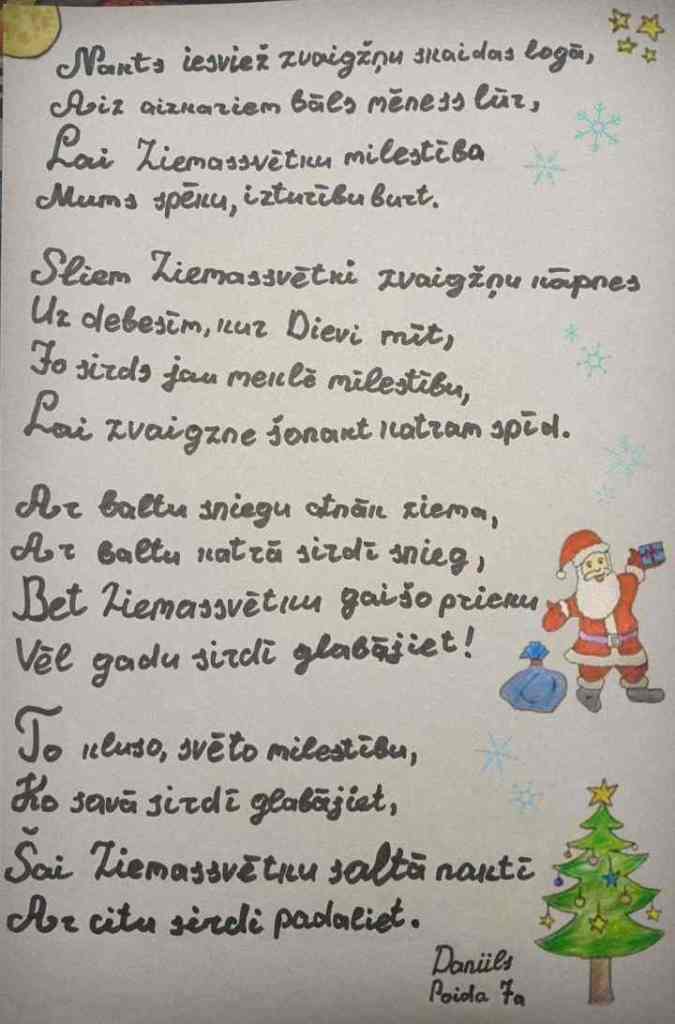 Nakts iesviež zvaigžņu skaidas logā,
Aiz aizkariem bāls mēness lūr,
Lai Ziemassvētku milestība
Mums spēku, izturību burt.
Sliem Ziemassvētki zvaigžņu kāpnes
Uz debesīm, kur Dievi mīt,
Jo sirds jau meklē mīlestību,
Lai zvaigzne šonakt katram spīd.
Ar baltu sniegu atnāk ziema,
Ar baltu katrā sirdī snieg,
Bet Ziemassvētku gaišo prieku
Vēl gadu sirdī glabājiet!
To kluso, svēto milestību,
Ko savā sirdī glabājiet,
Šai Ziemassvētku saltā naktī
Ar citu sirdi padaliet.
Daniils
Poida 7a